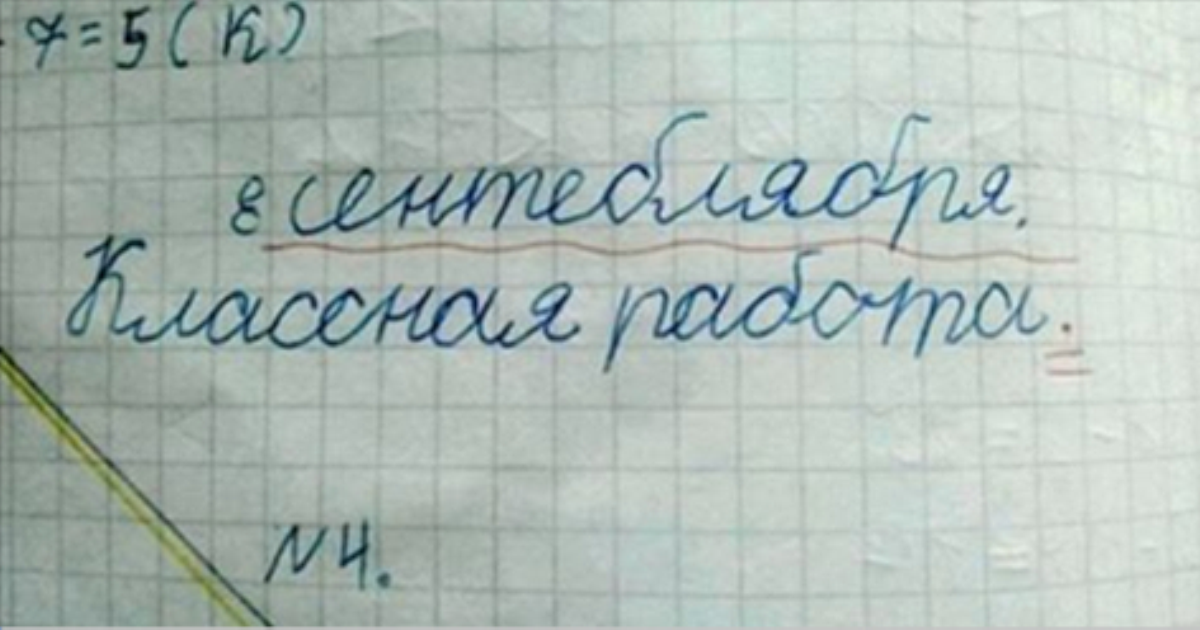 7=5(к)
8 сентеблября.
Классная работа.
N4.